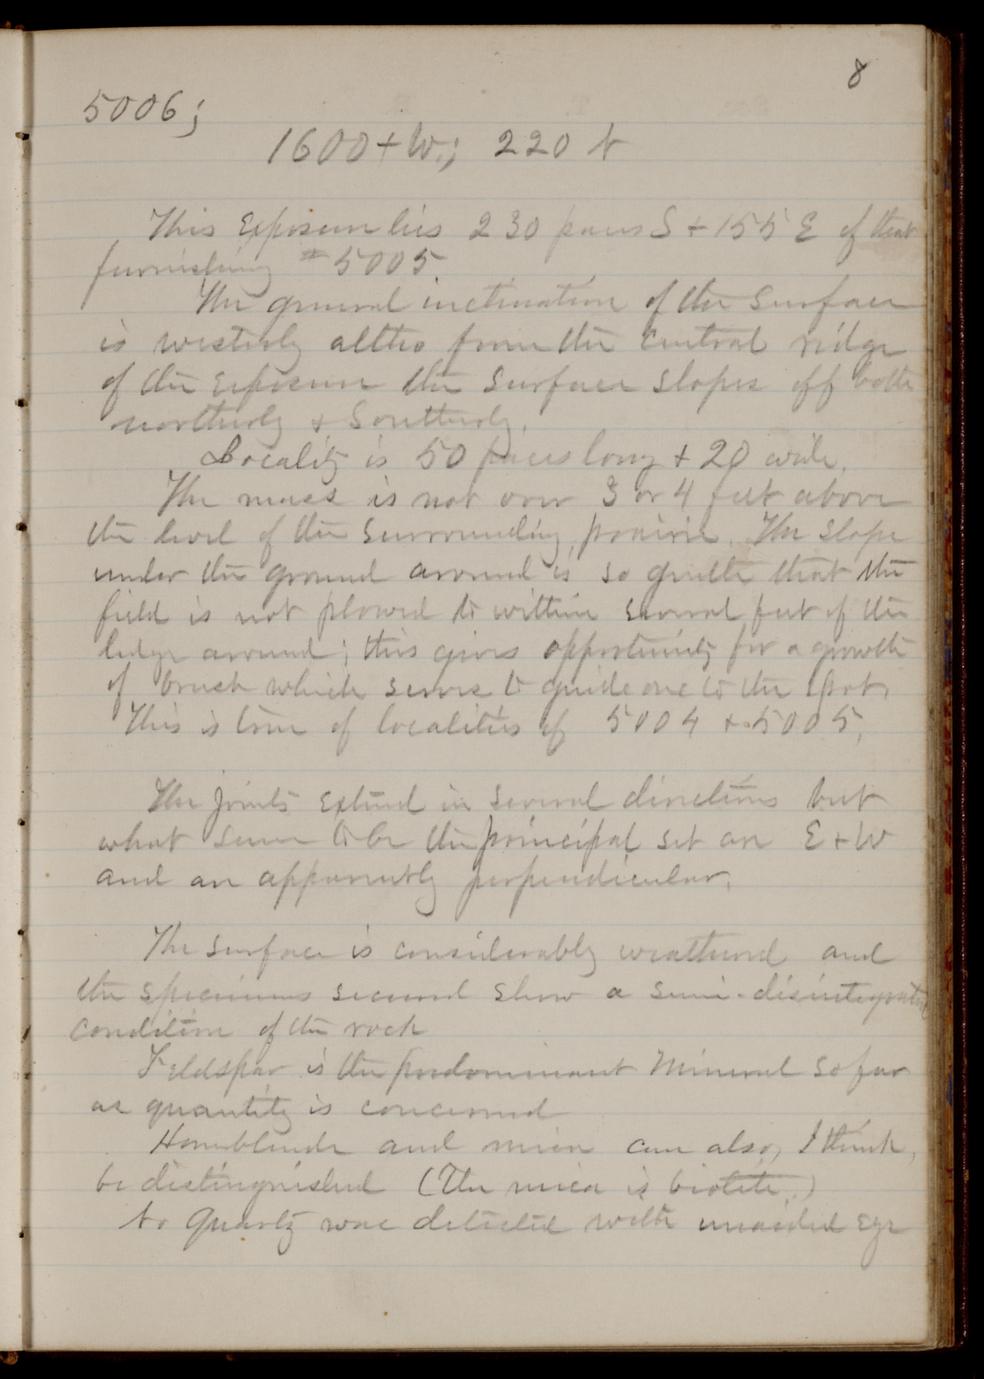 8
5006;
1600 + W.; 220 N
This Exposure lies 230 paces S + 155 E of that
furnishing # 5005.
The general inclination of the surface
is westerly altho from the central ridge
of the exposure the surface slopes off both
northerly & Southerly.
Locality is 50 paces long + 20 wide.
The mass is not over 3 or 4 feet above
the level of the surrounding prairie. The slope
under the ground around is so gentle that the
field is not plowed to within several feet of the
ledge around; this gives opportunity for a growth
of brush which serves to guide one to the spot.
This is true of localities of 5004 & 5005.
The joints extend in several directions but
what seem to be the principal set are E + W
and are apparently perpendicular.
The surface is considerably weathered and
the specimens secured show a semi-disintegrated
condition of the rock
Feldspar is the predominant mineral so far
as quantity is concerned
Hornblende and mica can also, I think,
be distinguished (The mica is biotite.)
No Quartz was detected with unaided eye